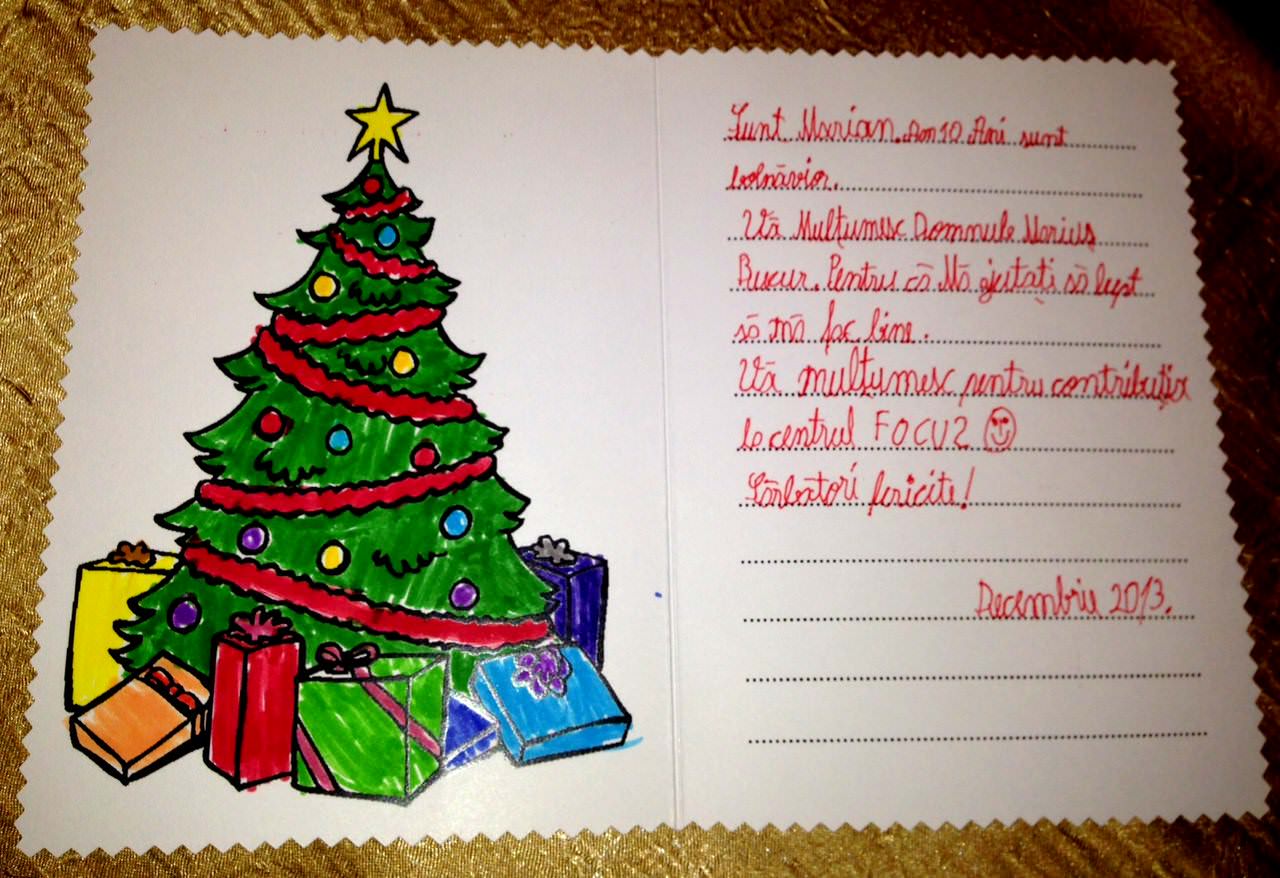 Sunt Marian. Am 10 Ani sunt
bolnăvior.
Vă Mulțumesc Domnule Marius
Bucur. Pentru că Mă ajutați să lupt
să mă fac bine.
Vă mulțumesc pentru contribuția
la centrul FOCUZ
Sărbători fericite!
Decembrie 2013.